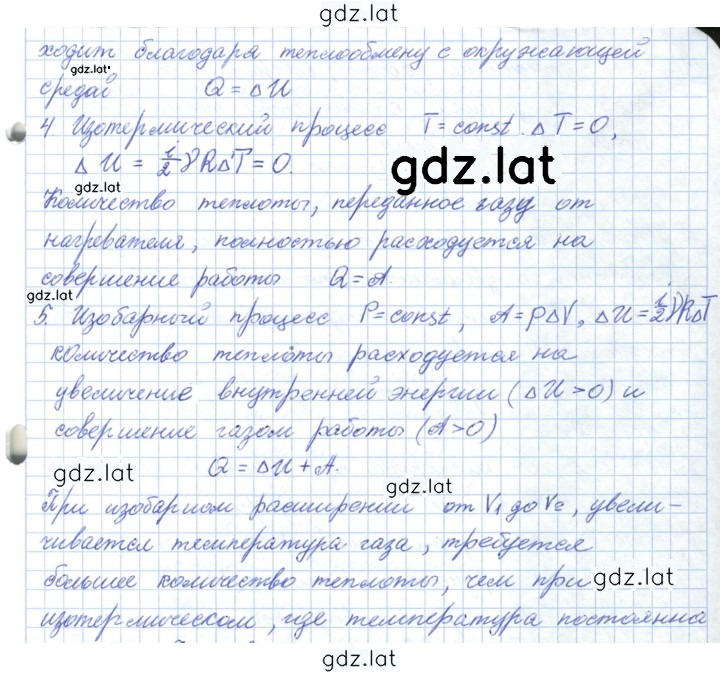 gdz.lat
ходит благодаря теплообмену с окружающей
gdz.lat
средой Q = ΔU
4 Изотермический процесс T = const. ΔT = 0,
ΔU = i/2 νRΔT = 0.
gdz.lat
gdz.lat
Количество теплоты, переданное газу от
нагревателя, полностью расходуется на
совершение работы Q = A.
gdz.lat
5. Изобарный процесс P = const, A = pΔV, ΔU = i/2 νRΔT
количество теплоты расходуется на
увеличение внутренней энергии (ΔU > 0) и
совершение газом работы (A > 0)
Q = ΔU + A.
gdz.lat
gdz.lat
При изобарном расширении от V₁ до V₂, увели-
чивается температура газа, требуется
большее количество теплоты, чем при
gdz.lat
изотермическом, где температура постоянна
gdz.lat